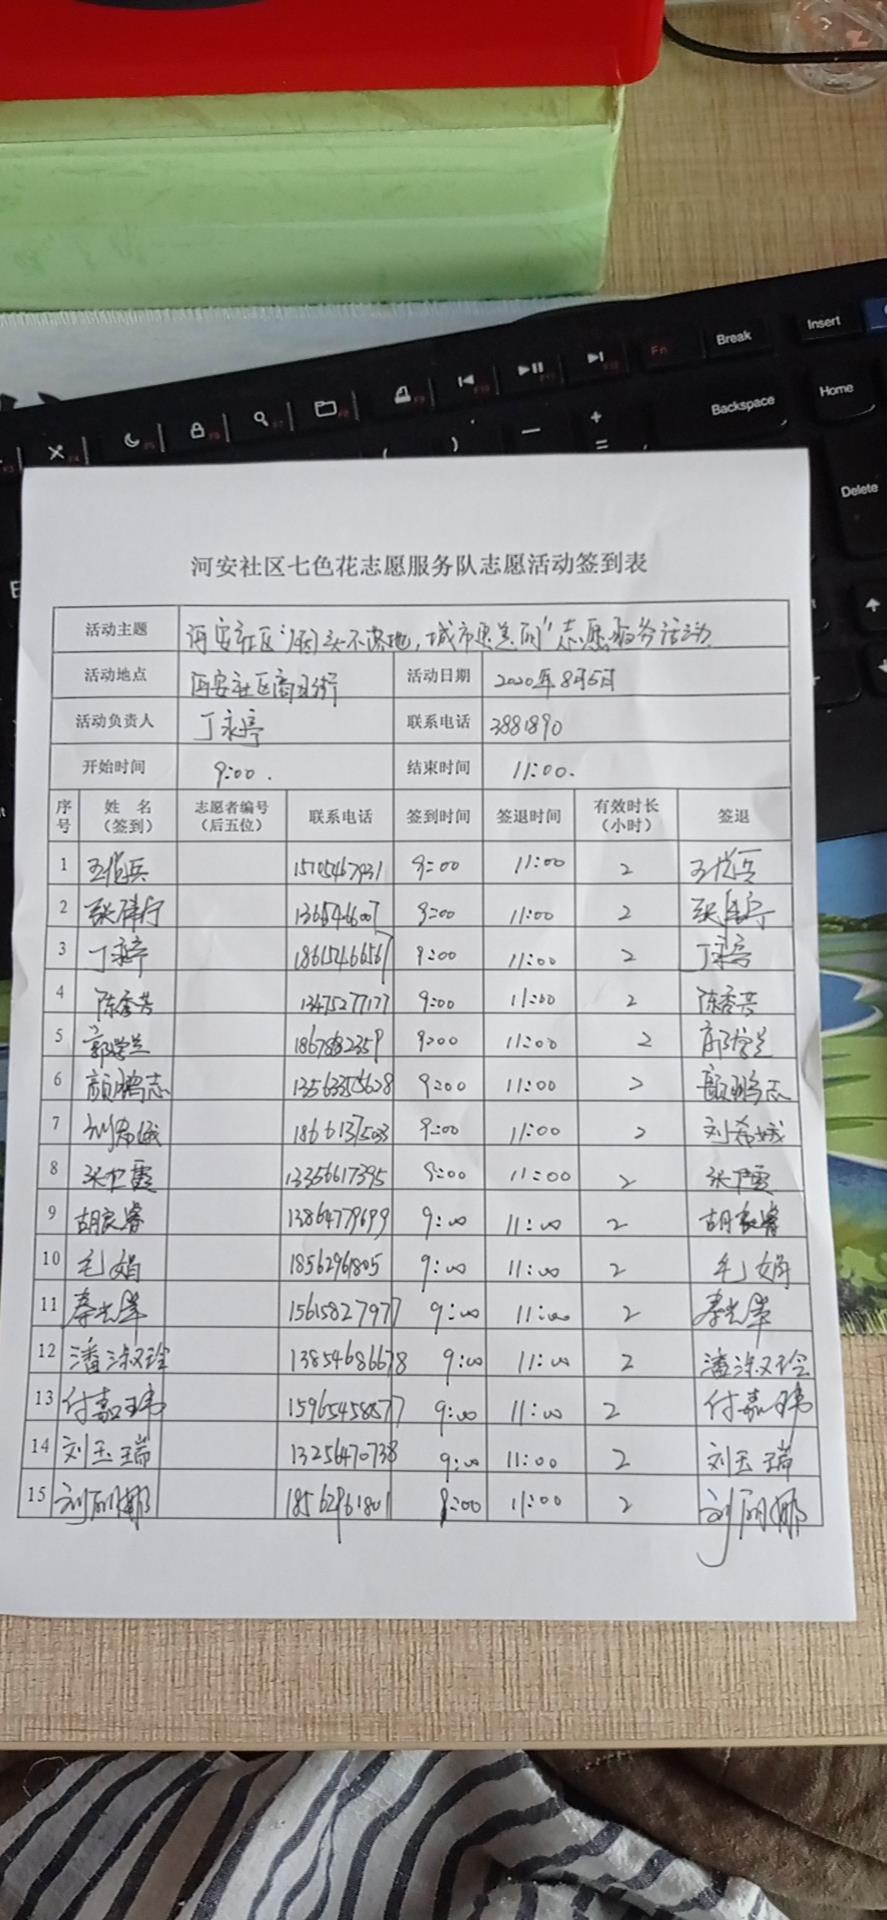 Break
Insert
Fn
Backspace
Home
Delete
河安社区七色花志愿服务队志愿活动签到表
活动主题 河安社区"烟头不落地,城市更美丽"志愿服务活动
活动地点 河安社区商业街 活动日期 2020年8月5日
活动负责人 丁永亭 联系电话 3881890
开始时间 9:00. 结束时间 11:00.
序号 姓 名(签到) 志愿者编号(后五位) 联系电话 签到时间 签退时间 有效时长(小时) 签退
1 15705467931 9:00 11:00 2
2 9:00 11:00 2
3 丁永亭 18615466567 9:00 11:00 2 丁永亭
4 陈香芳 13475277177 9:00 11:00 2 陈香芳
5 郭学兰 9:00 11:00 2 郭学兰
6 颜鹏志 13563355628 9:00 11:00 2 颜鹏志
7 刘希娥 18661375033 9:00 11:00 2 刘希娥
8 张卫霞 13356617395 9:00 11:00 2 张卫霞
9 胡良睿 13864779699 9:00 11:00 2 胡良睿
10 毛娟 18562961805 9:00 11:00 2 毛娟
11 秦光军 15615827977 9:00 11:00 2 秦光军
12 潘淑玲 13854686678 9:00 11:00 2 潘淑玲
13 付嘉玮 15965458577 9:00 11:00 2 付嘉玮
14 刘玉瑞 13256470738 9:00 11:00 2 刘玉瑞
15 刘丽娜 18562961801 9:00 11:00 2 刘丽娜